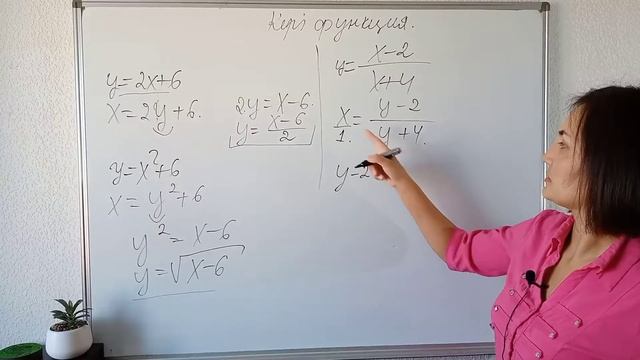 Кері функция.
y=2x+6
x=2y+6.
2y=x-6.
y=\frac{x-6}{2}
y=x²+6
x=y²+6
y²=x-6
y=√x-6
y=\frac{x-2}{x+4}
\frac{x}{1.}=\frac{y-2}{y+4.}
y-2